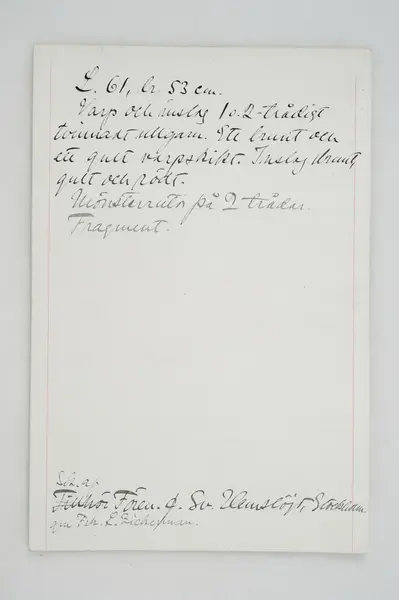 L. 61, br. 53 cm.
Varp och inslag 1 o. 2-trådigt
tvinnadt ullgarn. Ett brunt och
ett gult varpskikt. Inslag brunt,
gult och rödt.
Mönsterrutor på 2 trådar.
Fragment.
Tillhör Fören. f. Sv. Hemslöjd, Stockholm
gm Frk. L. Zickerman.